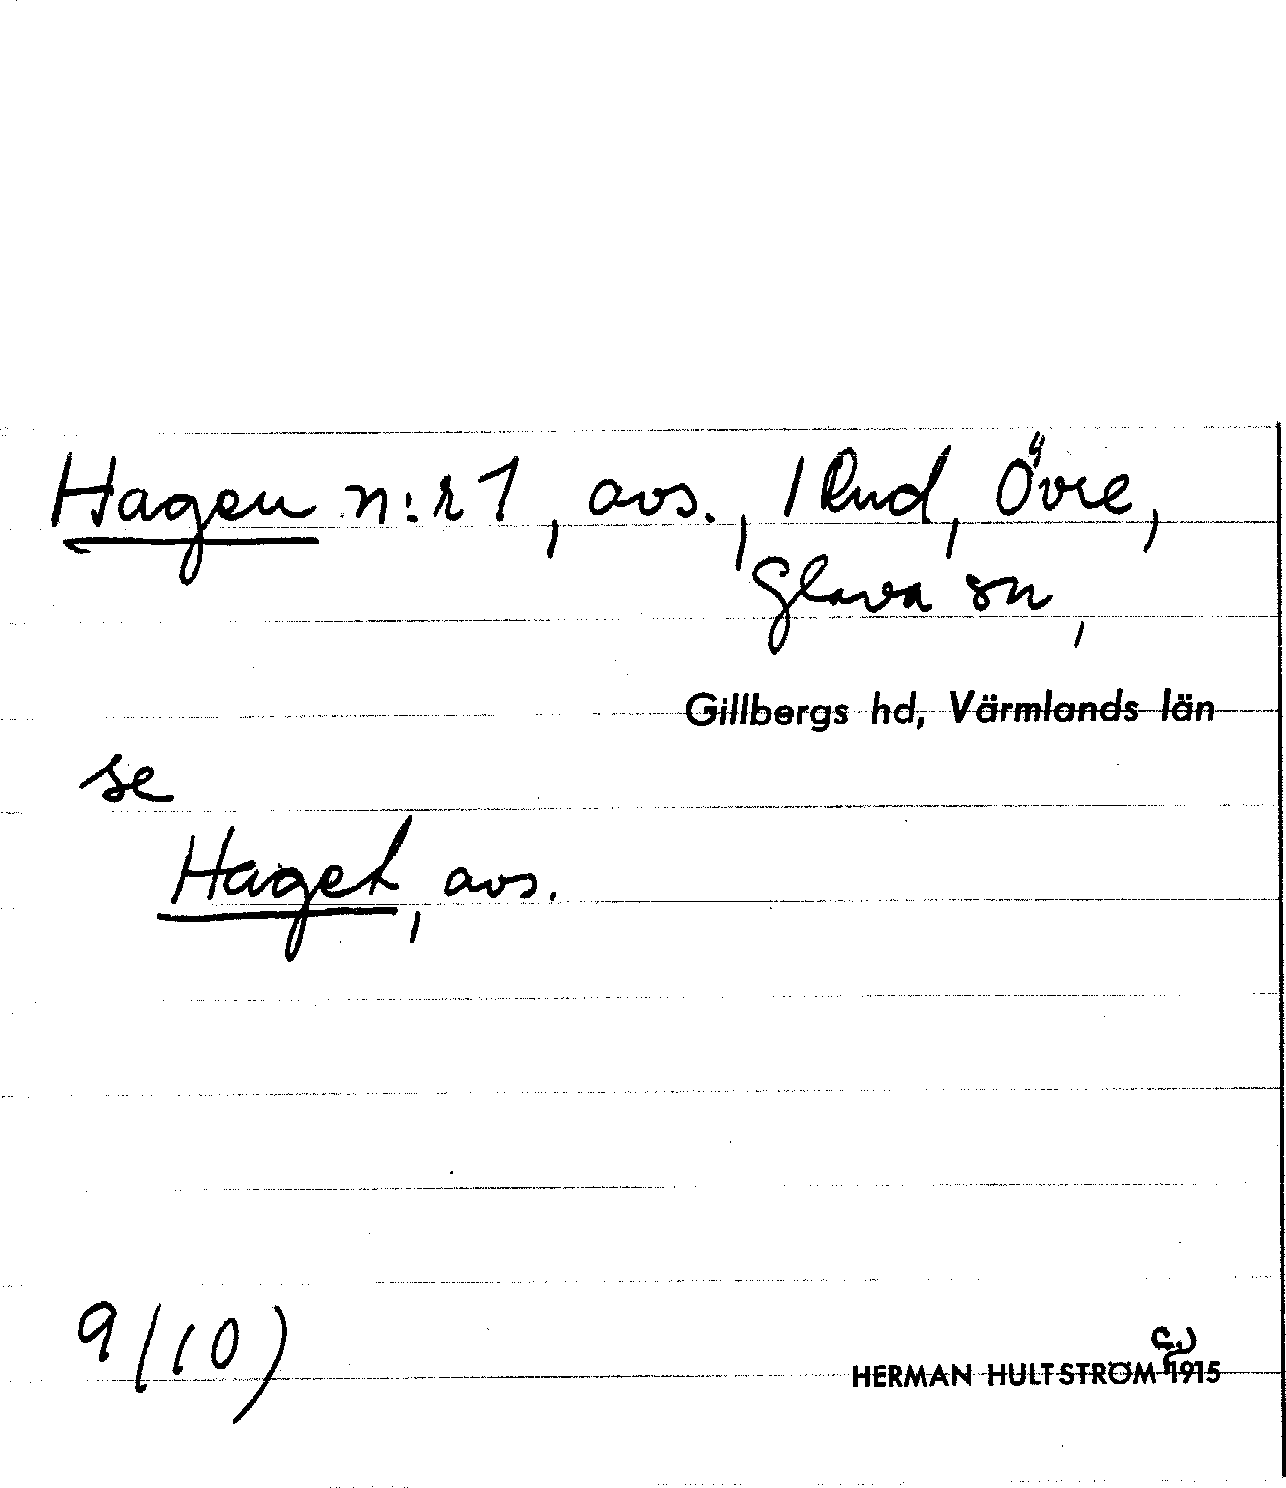 Hagen n:r 1, avs., 1 Rud, Övre,
Glava sn,
Gillbergs hd, Värmlands län
se
Haget, avs.
9/(10)
c.)
HERMAN HULTSTRÖM 1915